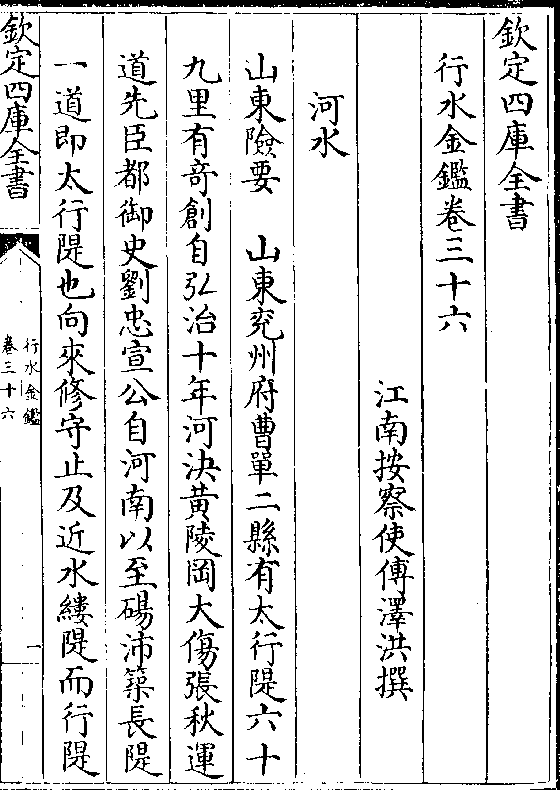 欽定四庫全書
行水金鑑卷三十六
江南按察使傅澤洪撰
河水
山東險要　山東兖州府曹單二縣有太行隄六十
九里有竒創自弘治十年河決黄陵岡大傷張秋運
道先臣都御史劉忠宣公自河南以至碭沛築長隄
一道即太行隄也向來修守止及近水縷隄而行隄
欽定四庫全書
行水金鑑
卷三十六
一